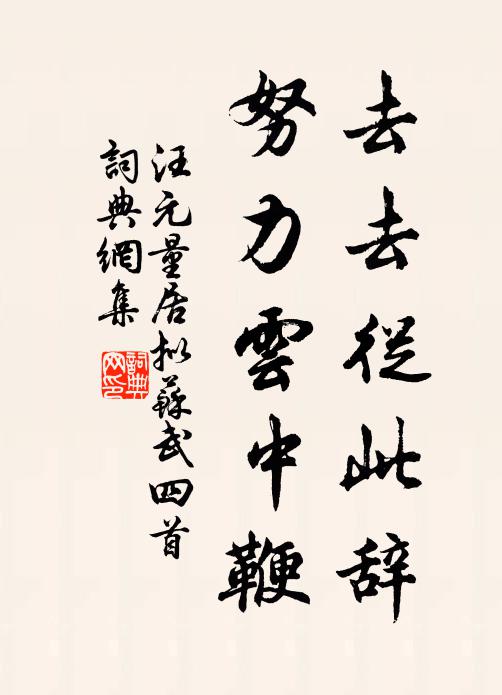 去去從此辞
努力雲中鞭
汪元量居拟蘇武四首
詞典網集
詞典网印